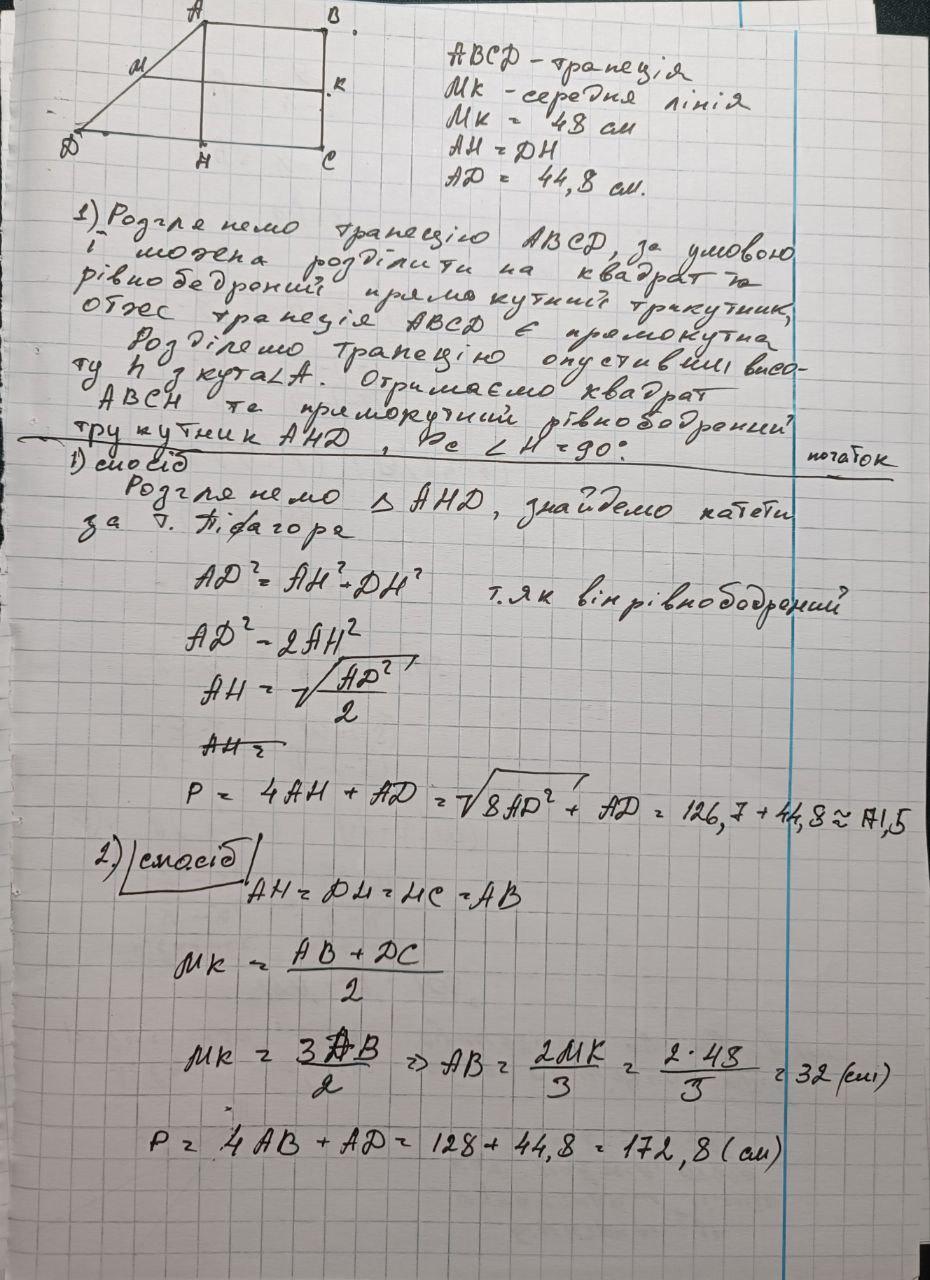 A
B
M
K
D
H
C
ABCD - трапеція
MK - середня лінія
MK = 48 см
AH = DH
AD = 44,8 см.
1) Розглянемо трапецію ABCD, за умовою
її можна розділити на квадрат та
рівнобедрений прямокутний трикутник,
отже трапеція ABCD є прямокутна
Розділемо трапецію опустивши висо-
ту h з кута ∠A. Отримаємо квадрат
ABCH та прямокутний рівнобедрений
трукутник AHD, де ∠H = 90°
початок
1) спосіб
Розглянемо △ AHD, знайдемо катети
за т. Піфагора
AD² = AH² + DH² т. як він рівнобедрений
AD² = 2AH²
AH = √(AD²/2)
AH =
P = 4AH + AD = √8AD² + AD = 126,7 + 44,8 ≈ 171,5
2) спосіб
AH = DH = HC = AB
MK = (AB + DC)/2
MK = 3AB/2 => AB = 2MK/3 = 2·48/3 = 32 (см)
P = 4AB + AD = 128 + 44,8 = 172,8 (см)